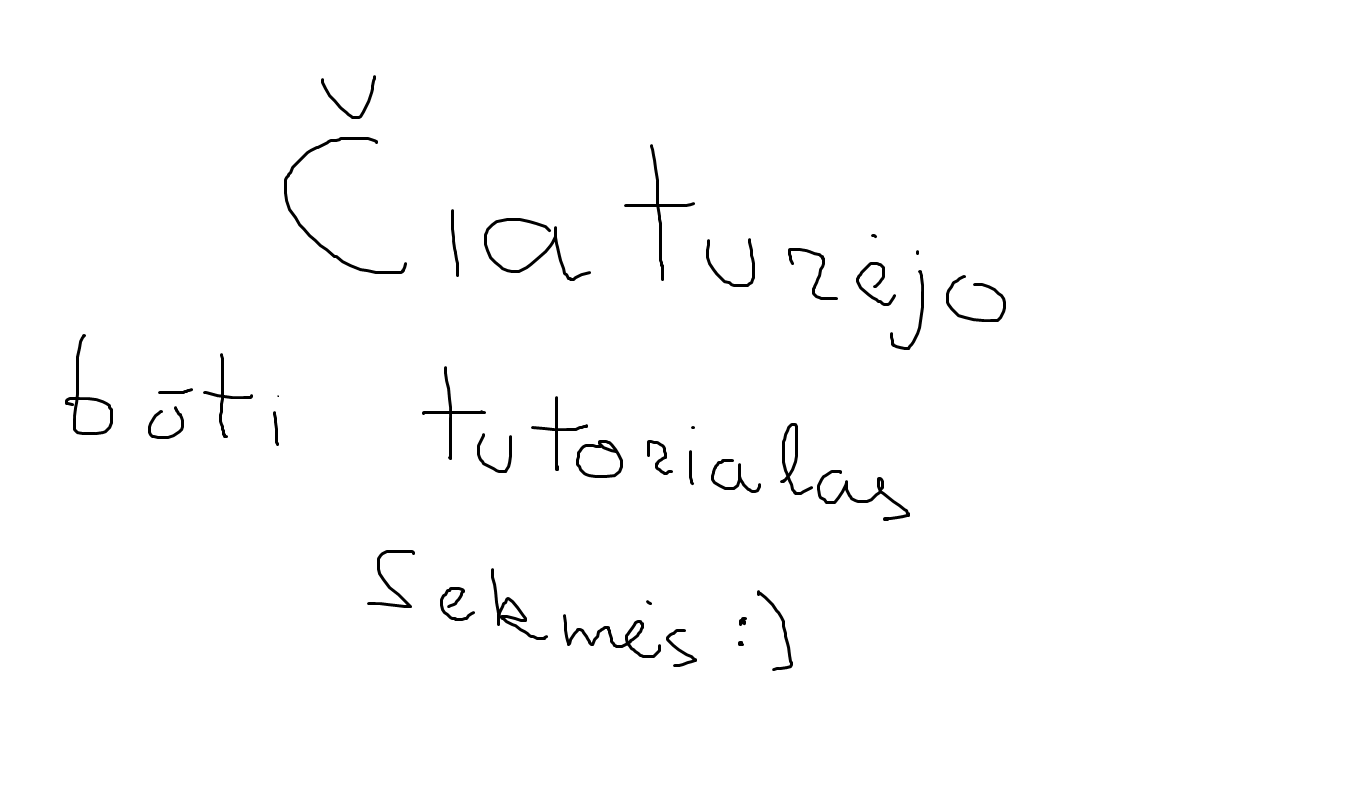 Čia turėjo
būti tutorialas
Sekmės :)